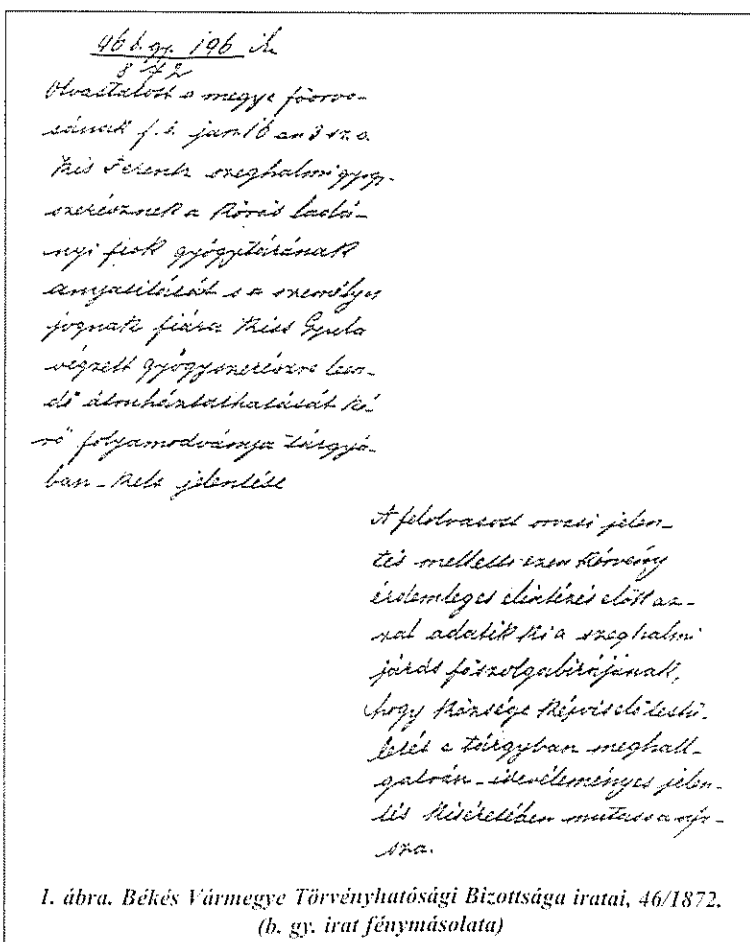 46 b. gy. 196 ik
872
Olvastatott a megye főorvo-
sának f. é. jan 16 án 3 sz. a.
Kis Ferencz szeghalmi gyógy-
szerésznek a Körös ladá-
nyi fiók gyógytárának
anyasitását s a személyes
jognak fiára Kiss Gyula
végzett gyógyszerészre leen-
dő átruháztathatását ké-
rő folyamodványa tárgyá-
ban kelt jelentése
A felolvasott orvosi jelen-
tés mellett ezen kérvény
érdemleges elintézés előtt az-
zal adatik ki a szeghalmi
járás főszolgabirájának,
hogy Községe képviselő testü-
letét e tárgyban meghall-
gatván véleményes jelen-
tés kíséretében mutassa ujo-
sza.
1. ábra. Békés Vármegye Törvényhatósági Bizottsága iratai, 46/1872.
(b. gy. irat fénymásolata)